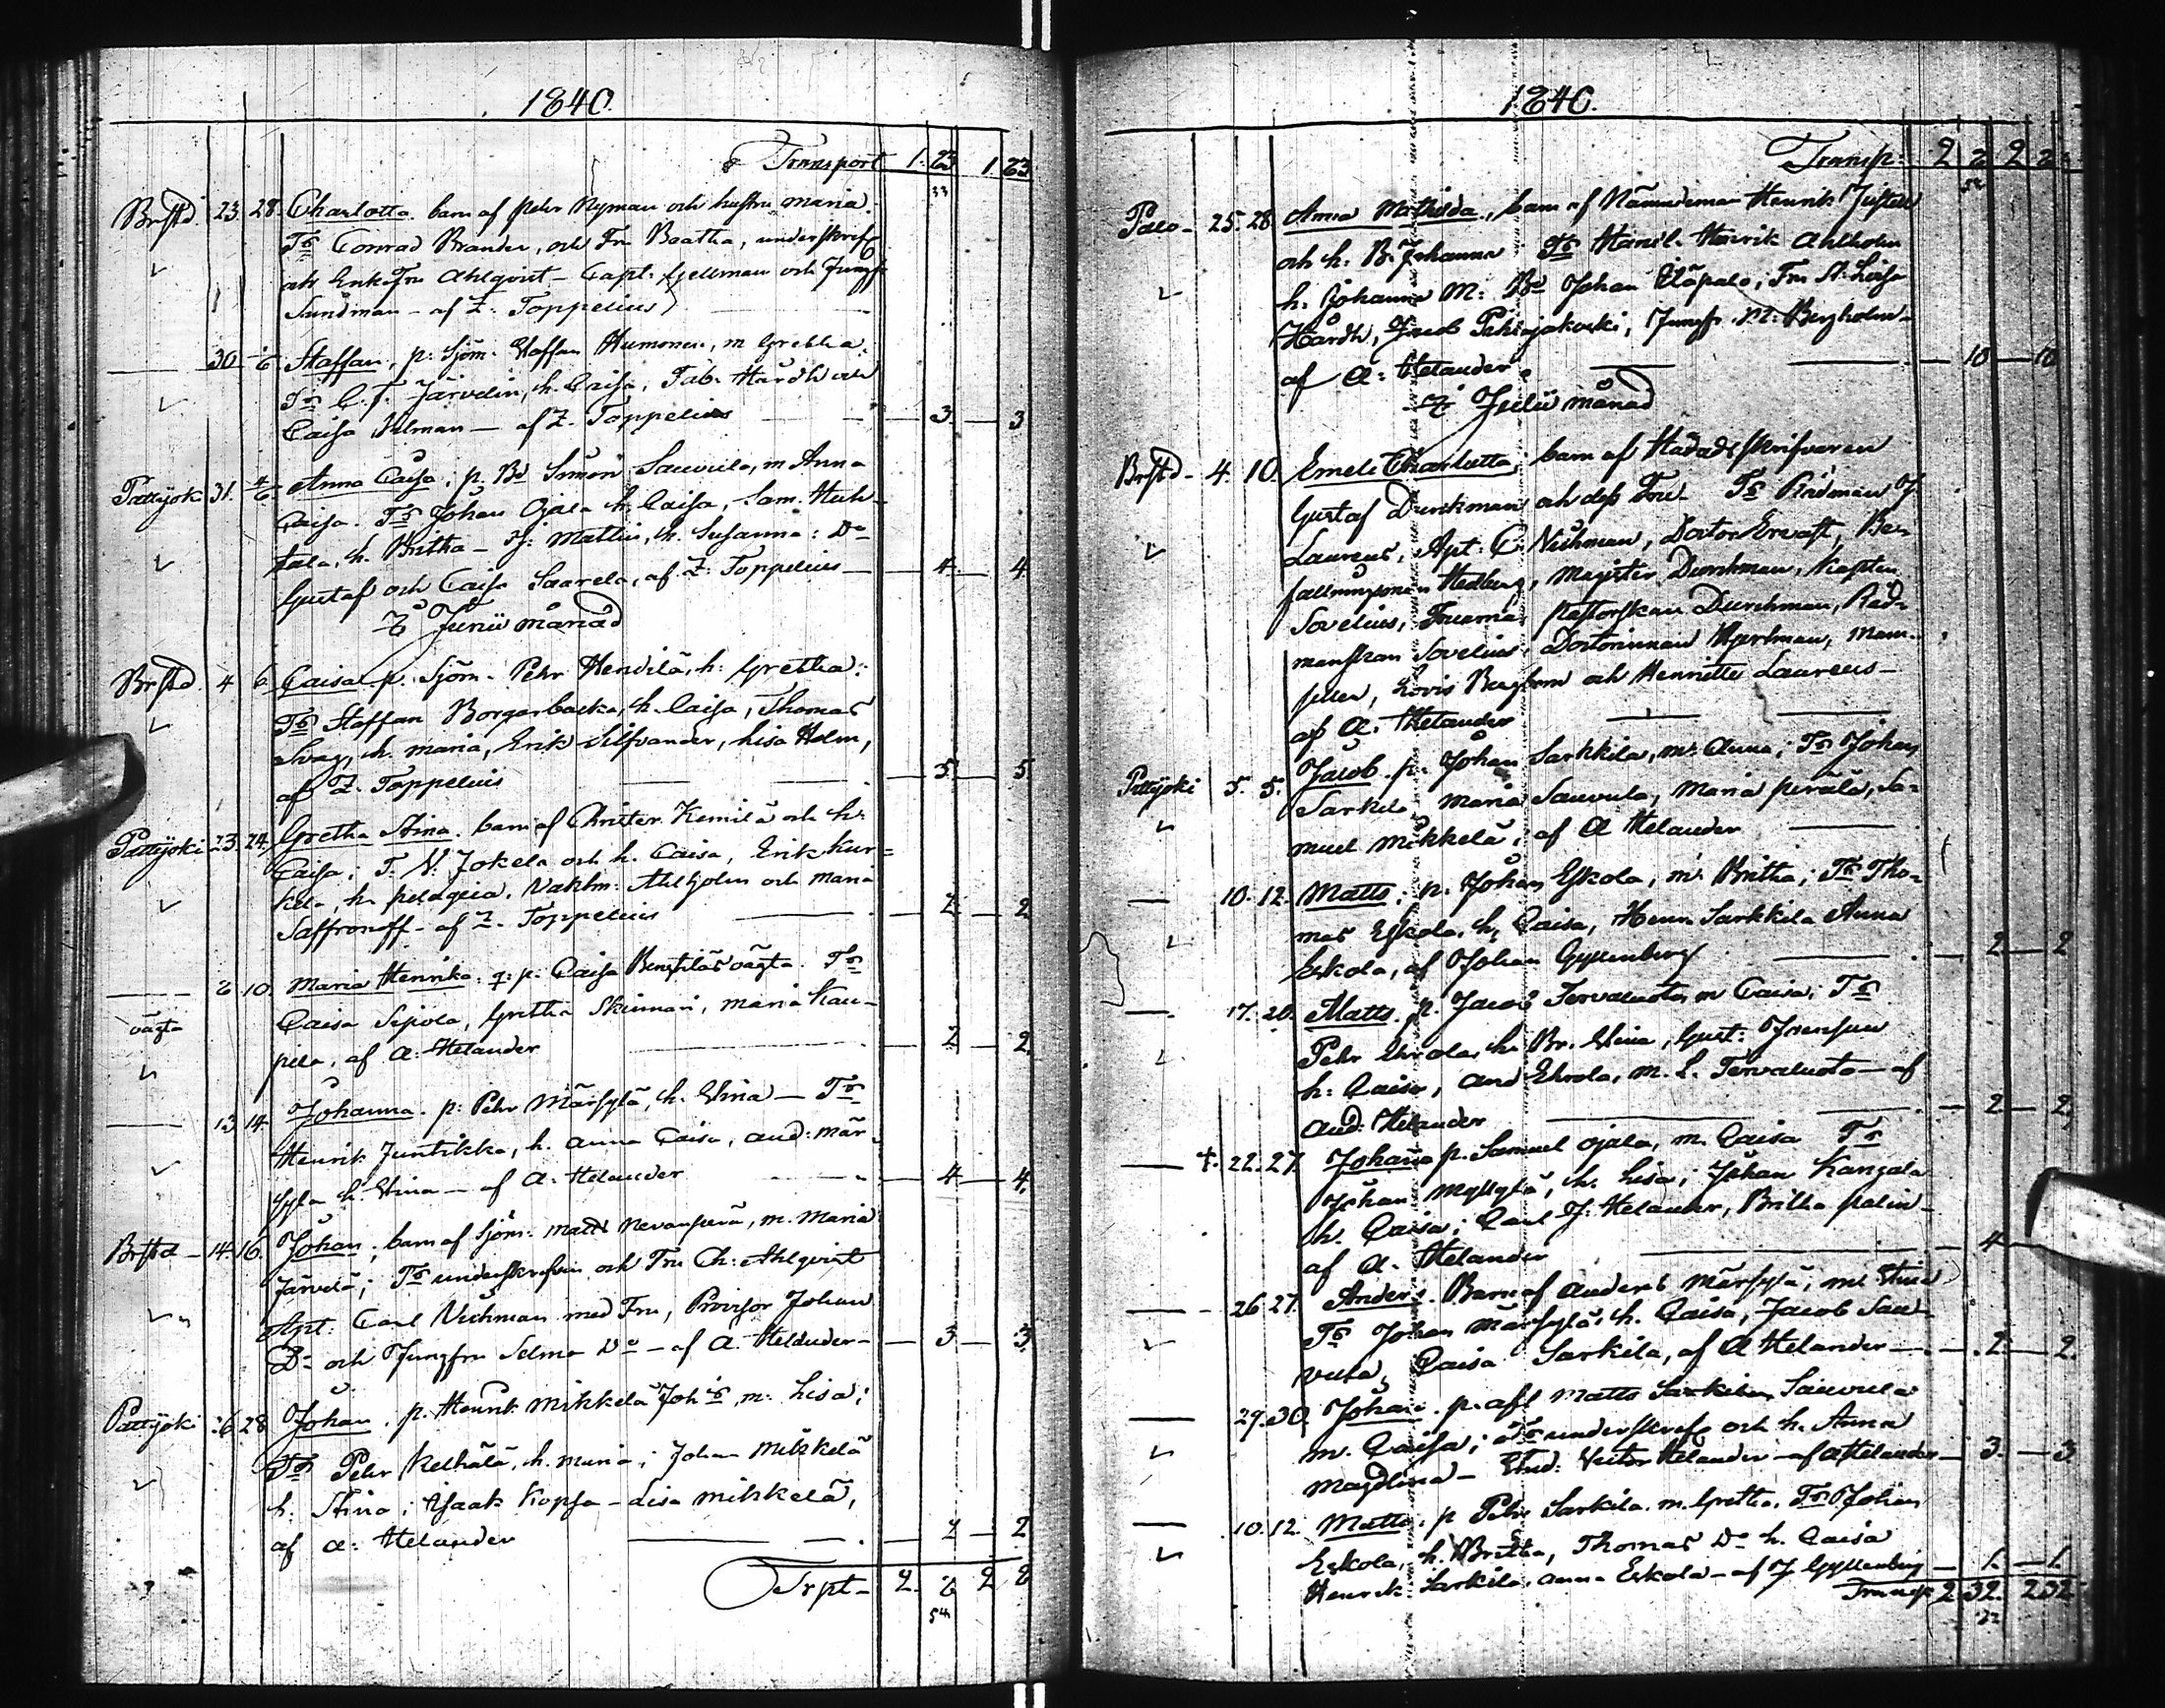 1840.
Transport 1. 23 1. 23
33
Brstd. 23 28 Charlotta. barn af Pehr Nyman och hustru Maria.
Tr Conrad Brander, och Fru Beatha, underskref
och Enkefru Ahlqvist - Capt. Gellman och Jungf.
Sundman - af Z. Toppelius
30 6 Staffan, p: Sjöm. Staffan Humonen, m Gretha.
Tr C. J. Järvelin, h. Caisa, Fab. Hårdh och
Caisa Ulman - af Z. Toppelius 3 3
Pattijoki 31. 4/6 Anna Caisa, p. Bd Simon Sauvula, m Anna
Caisa. Tr Johan Ojala h. Caisa, Sam. Huh-
tala, h. Britha - J. Mattus, h. Susanna: Do
Gustaf och Caisa Saarela, af Z. Toppelius 4 4
Junii månad
Brstd. 4 6 Caisa p. Sjöm. Pehr Hendilä, h: Gretha:
Tr Staffan Borgarbacka, h. Caisa, Thomas
Svag, h. Maria, Erik Silfvander, Lisa Holm,
af Z. Toppelius 5. 5
Pattijoki 23. 24. Gretha Stina. barn af Christer Kemilä och h:
Caisa; T. N. Jokela och h. Caisa, Erik Kur=
kela, h. Pelageia. Vaktm: Ahlholm och Maria
Saffronoff - af Z. Toppelius 2 2
8 10. Maria Henrika. p: Caisa Benstilas oägta. Tr
oägta Caisa Sipola, Gretha Skinnari, Maria Kau-
pila, af A. Helander 2 2
13 14. Johanna. p: Pehr Märsylä, h. Stina - Tr
Henrik Juntikka, h. Anna Caisa, And: Mär
sylä h. Stina - af A. Helander 4 4.
Brstd - 14. 16. Johan; barn af Sjöm: Matts Nevanperä, m. Maria
Järvelä; Tr underskrefvin och Fru Ch: Ahlqvist
Apt. Carl Neuhman med Fru, Provisor Johan
Do och Jungfru Selma Do - af A. Helander 3 3
Pattijoki 26 28 Johan. p. Henrik Mikkelä Joh:s, m: Lisa;
Tr Pehr Kelhälä, h. Maria; Johan Mikkelä
h. Stina; Isaak Kopsa - Lisa Mikkelä,
af A: Helander 2 2
Trpt - 2. 8 2 8
54
1840.
Transp: 2 8 2 8
54
Palo - 25. 28 Anna Mathilda, barn af Nämndeman Henrik Justell
och h. B. Johanna Tr Handl. Henrik Ahlholm
h. Johanna M: Bd Johan Yläpalo, Fru A. Lovisa
Hårdh, Jacob Pehrsjakoski, Jungfr. M: Bergholm -
af A: Helander 10 10
Julii månad
Brstd - 4. 10. Emeli Charlotta, barn af Häradsskrifvaren
Gustaf Durchman och dess Fru - Tr Rådman J
Laurens, Apt: C. Neuhman, Doctor Ervast, Be-
fallningsman Hedberg, Magister Durchman, Kapten
Sovelius, Fruarna Pastorskan Durchman, Råd-
manskan Sovelius, Doctorinnan Hjertman, Mam-
seller, Lovis Bergbom och Henriette Laurens -
af A. Helander
Pattijoki 5. 5. Jacob. p. Johan Sarkkila, m. Anna; Tr Johan
Sarkila, Maria Sauvula, Maria Perälä, Sa-
muel Mikkelä, af A Helander
10. 12. Matts, p. Johan Eskola, m. Britha; Tr Tho-
mas Eskola, h. Caisa, Henr. Sarkkila Anna
Eskola, af Johan Gyllenberg 2 2
17. 20. Matts. p. Jacob Tervaluoto, m Caisa; Tr
Pehr Ehrola, h. Br. Stina, Gust: Fransun
h: Caisa, And Ehrola, M. L. Tervaluoto - af
And: Helander 2 2.
+ 22. 27. Johan p. Samuel Ojala, m. Caisa Tr
Johan Myllylä, h. Lisa; Johan Kangala
h. Caisa; Carl J. Helander, Britha Palin -
af A. Helander 4
26 27. Anders. Barn af Anders Märsylä, m: Stina
Tr Johan Märsylä, h. Caisa, Jacob Sau-
vula, Caisa Sarkila, af A Helander 2. 2.
29. 30. Johan. p. afl Matts Sarkila Sauvula
m. Caisa; Tr underskrefv och h. Anna
Magdlena - Stud: Victor Helander - af A Helander 3. 3
10. 12. Matts. p Pehr Sarkila. m. Gretha. Tr Johan
Eskola, h. Britha, Thomas Do h. Caisa
Henrik Sarkila, Anna Eskola - af J Gyllenberg 1. 1.
Transp 2 32. 2 32
22